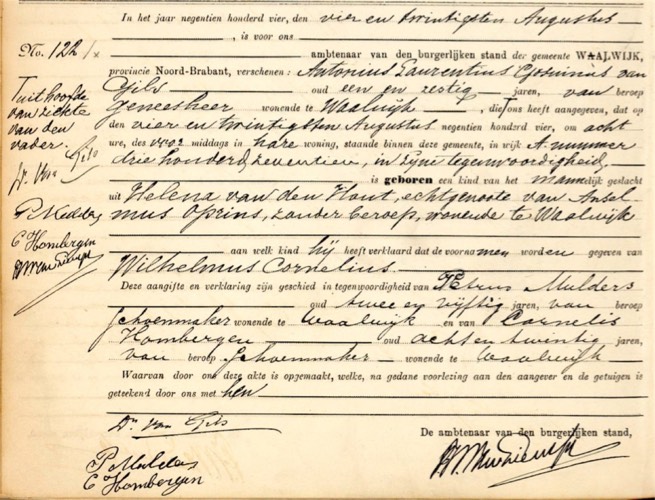 In het jaar negentien honderd vier, den vier en twintigsten Augustus
, is voor ons
No. 122
ambtenaar van den burgerlijken stand der gemeente WAALWIJK,
provincie Noord-Brabant, verschenen: Antonius Laurentius van
Gils oud een en zestig jaren, van beroep
Geneesheer wonende te Waalwijk, die ons heeft aangegeven, dat op
den vier en twintigsten Augustus negentien honderd vier, om acht
ure, des voor middags in hare woning, staande binnen deze gemeente, in wijk A. nummer
drie honderd zeventien, in zijne tegenwoordigheid,
is geboren een kind van het mannelijk geslacht
uit Helena van den Hout, echtgenoote van Ansel-
mus Oprins, zonder beroep, wonende te Waalwijk
aan welk kind hij heeft verklaard dat de voornamen worden gegeven van
Wilhelmus Cornelius.
Deze aangifte en verklaring zijn geschied in tegenwoordigheid van Petrus Mulders
oud twee en vijftig jaren, van beroep
Schoenmaker wonende te Waalwijk en van Cornelis
Hombergen oud acht en twintig jaren,
van beroep Schoenmaker wonende te Waalwijk
Waarvan door ons deze akte is opgemaakt, welke, na gedane voorlezing aan den aangever en de getuigen is
geteekend door ons met hen
Dr van Gils
De ambtenaar van den burgerlijken stand,
P. Mulders
C Hombergen
Tuithoofde
van ziekte
van den
vader.
Dr. van Gils
P. Mulders
C Hombergen